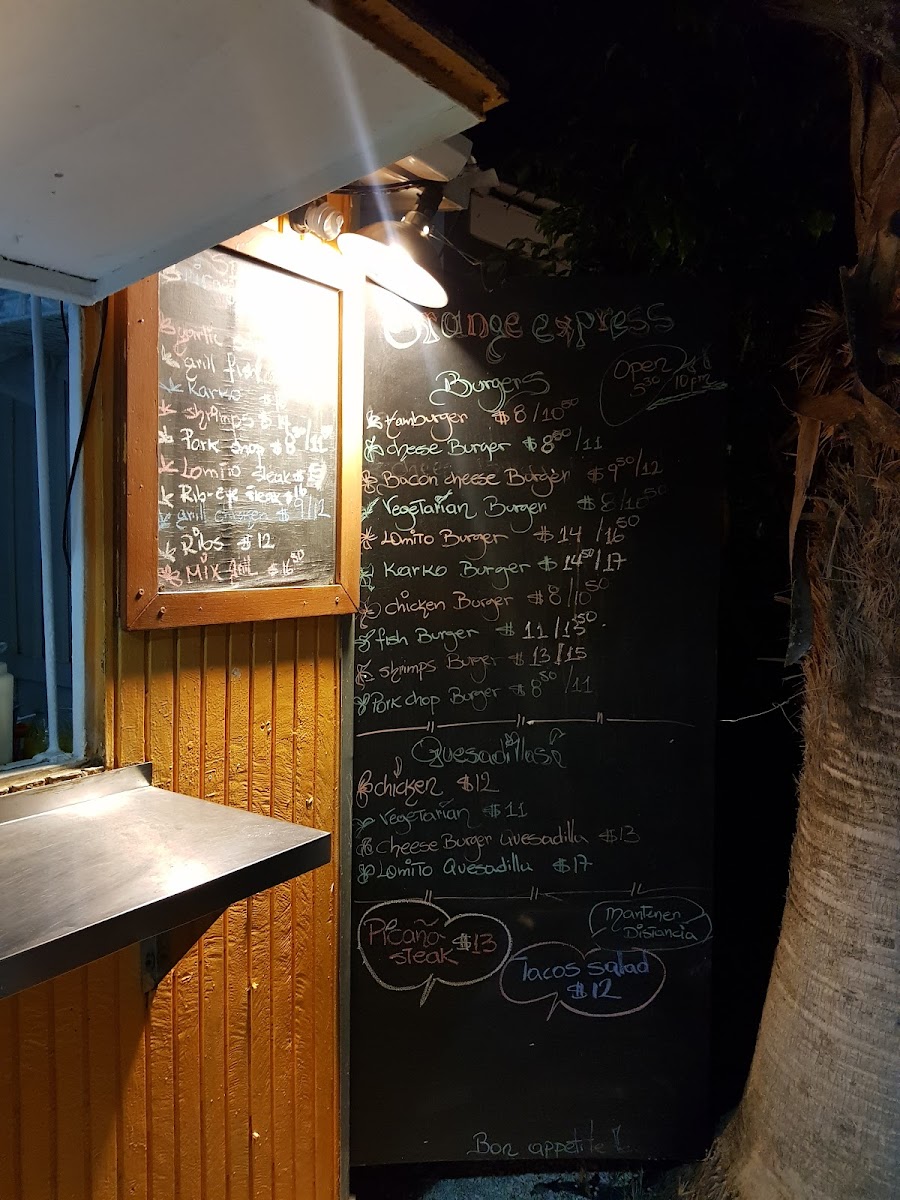 garlic
grill fish
Karko
shrimps $ 14
Pork chop $ 8⁵⁰/11
Lomito steak $
Rib-eye steak $16
grill chicken $ 9/12
Ribs $ 12
Mix grill $ 16⁵⁰
Orange express
Open
5³⁰/10pm
Burgers
Hamburger $ 8/10⁵⁰
Cheese Burger $8⁵⁰/11
Bacon cheese Burger $9⁵⁰/12
Vegetarian Burger $8/10⁵⁰
Lomito Burger $14/16⁵⁰
Karko Burger $14⁵⁰/17
chicken Burger $8/10⁵⁰
fish Burger $ 11/13⁵⁰
shrimps Burger $ 13/15
Pork chop Burger $ 8⁵⁰/11
Quesadillas
chicken $12
Vegetarian $11
Cheese Burger Quesadilla $13
Lomito Quesadilla $17
Picaño
steak $13
Mantener
Distancia
Tacos salad
$12
Bon appetite!